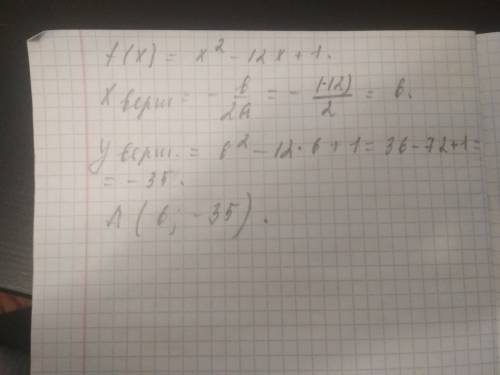 f(x) = x² - 12x + 1.
X верш = - b/2a = - (-12)/2 = 6.
У верш. = 6² - 12·6 + 1 = 36 - 72 + 1 =
= - 35.
A (6; - 35).